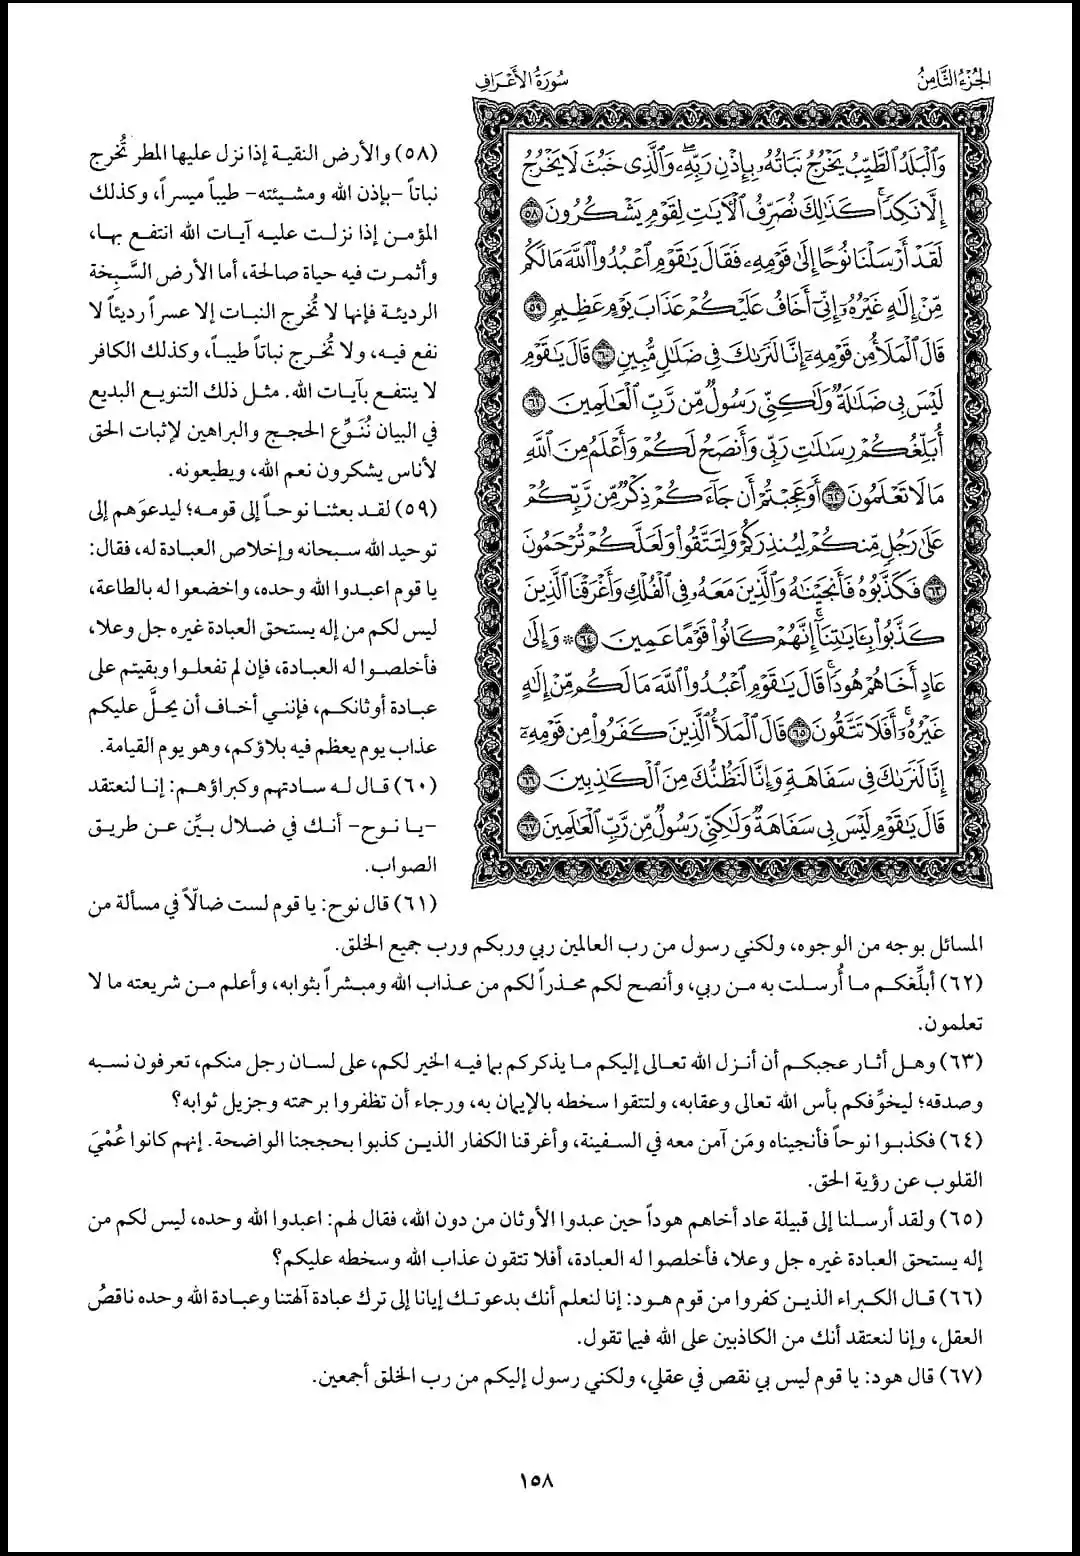 الجزء الثامن
سورة الأعراف
وَالْبَلَدُ الطَّيِّبُ يَخْرُجُ نَبَاتُهُ بِإِذْنِ رَبِّهِ وَالَّذِي خَبُثَ لَا يَخْرُجُ
إِلَّا نَكِدًا كَذَٰلِكَ نُصَرِّفُ الْآيَاتِ لِقَوْمٍ يَشْكُرُونَ ٥٨
لَقَدْ أَرْسَلْنَا نُوحًا إِلَىٰ قَوْمِهِ فَقَالَ يَاقَوْمِ اعْبُدُوا اللَّهَ مَا لَكُم
مِّنْ إِلَٰهٍ غَيْرُهُ إِنِّي أَخَافُ عَلَيْكُمْ عَذَابَ يَوْمٍ عَظِيمٍ ٥٩
قَالَ الْمَلَأُ مِن قَوْمِهِ إِنَّا لَنَرَاكَ فِي ضَلَالٍ مُّبِينٍ ٦٠ قَالَ يَاقَوْمِ
لَيْسَ بِي ضَلَالَةٌ وَلَٰكِنِّي رَسُولٌ مِّن رَّبِّ الْعَالَمِينَ ٦١
أُبَلِّغُكُمْ رِسَالَاتِ رَبِّي وَأَنصَحُ لَكُمْ وَأَعْلَمُ مِنَ اللَّهِ
مَا لَا تَعْلَمُونَ ٦٢ أَوَعَجِبْتُمْ أَن جَاءَكُمْ ذِكْرٌ مِّن رَّبِّكُمْ
عَلَىٰ رَجُلٍ مِّنكُمْ لِيُنذِرَكُمْ وَلِتَتَّقُوا وَلَعَلَّكُمْ تُرْحَمُونَ
٦٣ فَكَذَّبُوهُ فَأَنجَيْنَاهُ وَالَّذِينَ مَعَهُ فِي الْفُلْكِ وَأَغْرَقْنَا الَّذِينَ
كَذَّبُوا بِآيَاتِنَا إِنَّهُمْ كَانُوا قَوْمًا عَمِينَ ٦٤ ۞ وَإِلَىٰ
عَادٍ أَخَاهُمْ هُودًا قَالَ يَاقَوْمِ اعْبُدُوا اللَّهَ مَا لَكُم مِّنْ إِلَٰهٍ
غَيْرُهُ أَفَلَا تَتَّقُونَ ٦٥ قَالَ الْمَلَأُ الَّذِينَ كَفَرُوا مِن قَوْمِهِ
إِنَّا لَنَرَاكَ فِي سَفَاهَةٍ وَإِنَّا لَنَظُنُّكَ مِنَ الْكَاذِبِينَ ٦٦
قَالَ يَاقَوْمِ لَيْسَ بِي سَفَاهَةٌ وَلَٰكِنِّي رَسُولٌ مِّن رَّبِّ الْعَالَمِينَ ٦٧
(٥٨) والأرض النقية إذا نزل عليها المطر تُخرج
نباتاً -بإذن الله ومشيئته- طيباً ميسراً، وكذلك
المؤمن إذا نزلت عليه آيات الله انتفع بها،
وأثمرت فيه حياة صالحة، أما الأرض السَّبِخة
الرديئة فإنها لا تُخرج النبات إلا عسراً رديئاً لا
نفع فيه، ولا تُخرج نباتاً طيباً، وكذلك الكافر
لا ينتفع بآيات الله. مثل ذلك التنويع البديع
في البيان نُنَوِّع الحجج والبراهين لإثبات الحق
لأناس يشكرون نعم الله، ويطيعونه.
(٥٩) لقد بعثنا نوحاً إلى قومه؛ ليدعوَهم إلى
توحيد الله سبحانه وإخلاص العبادة له، فقال:
يا قوم اعبدوا الله وحده، واخضعوا له بالطاعة،
ليس لكم من إله يستحق العبادة غيره جل وعلا،
فأخلصوا له العبادة، فإن لم تفعلوا وبقيتم على
عبادة أوثانكم، فإنني أخاف أن يحلَّ عليكم
عذاب يوم يعظم فيه بلاؤكم، وهو يوم القيامة.
(٦٠) قال له سادتهم وكبراؤهم: إنا لنعتقد
-يا نوح- أنك في ضلال بيِّن عن طريق
الصواب.
(٦١) قال نوح: يا قوم لست ضالّاً في مسألة من
المسائل بوجه من الوجوه، ولكني رسول من رب العالمين ربي وربكم ورب جميع الخلق.
(٦٢) أبلِّغكم ما أُرسلت به من ربي، وأنصح لكم محذراً لكم من عذاب الله ومبشراً بثوابه، وأعلم من شريعته ما لا
تعلمون.
(٦٣) وهل أثار عجبكم أن أنزل الله تعالى إليكم ما يذكركم بما فيه الخير لكم، على لسان رجل منكم، تعرفون نسبه
وصدقه؛ ليخوِّفكم بأس الله تعالى وعقابه، ولتتقوا سخطه بالإيمان به، ورجاء أن تظفروا برحمته وجزيل ثوابه؟
(٦٤) فكذبوا نوحاً فأنجيناه ومَن آمن معه في السفينة، وأغرقنا الكفار الذين كذبوا بحججنا الواضحة. إنهم كانوا عُمْيَ
القلوب عن رؤية الحق.
(٦٥) ولقد أرسلنا إلى قبيلة عاد أخاهم هوداً حين عبدوا الأوثان من دون الله، فقال لهم: اعبدوا الله وحده، ليس لكم من
إله يستحق العبادة غيره جل وعلا، فأخلصوا له العبادة، أفلا تتقون عذاب الله وسخطه عليكم؟
(٦٦) قال الكبراء الذين كفروا من قوم هود: إنا لنعلم أنك بدعوتك إيانا إلى ترك عبادة آلهتنا وعبادة الله وحده ناقصُ
العقل، وإنا لنعتقد أنك من الكاذبين على الله فيما تقول.
(٦٧) قال هود: يا قوم ليس بي نقص في عقلي، ولكني رسول إليكم من رب الخلق أجمعين.
١٥٨